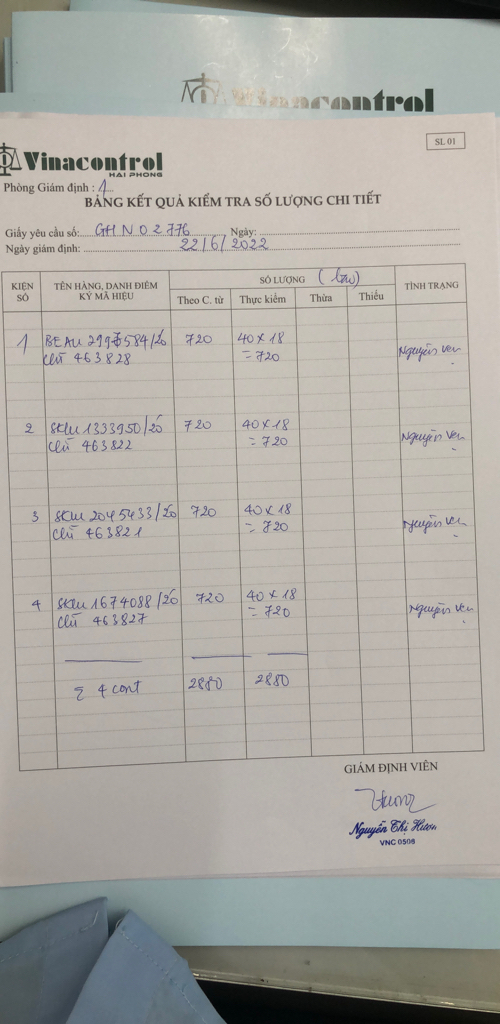 Vinacontrol
Vinacontrol
HAI PHONG
SL 01
Phòng Giám định : 1
BẢNG KẾT QUẢ KIỂM TRA SỐ LƯỢNG CHI TIẾT
Giấy yêu cầu số: GHN02776 Ngày:
Ngày giám định: 22/6/2022
KIỆN SỐ TÊN HÀNG, DANH ĐIỂM KÝ MÃ HIỆU SỐ LƯỢNG TÌNH TRẠNG
Theo C. từ Thực kiểm Thừa Thiếu
1 BEAU 2995584/20 720 40 x 18 Nguyên vẹn
chì 463828 = 720
2 SKLU 1333950/20 720 40 x 18 Nguyên vẹn
chì 463822 = 720
3 SKLU 2045433/20 720 40 x 18 Nguyên vẹn
chì 463821 = 720
4 SKLU 1674088/20 720 40 x 18 Nguyên vẹn
chì 463827 = 720
Σ 4 cont 2880 2880
GIÁM ĐỊNH VIÊN
Nguyễn Thị Hươn
VNC 0508